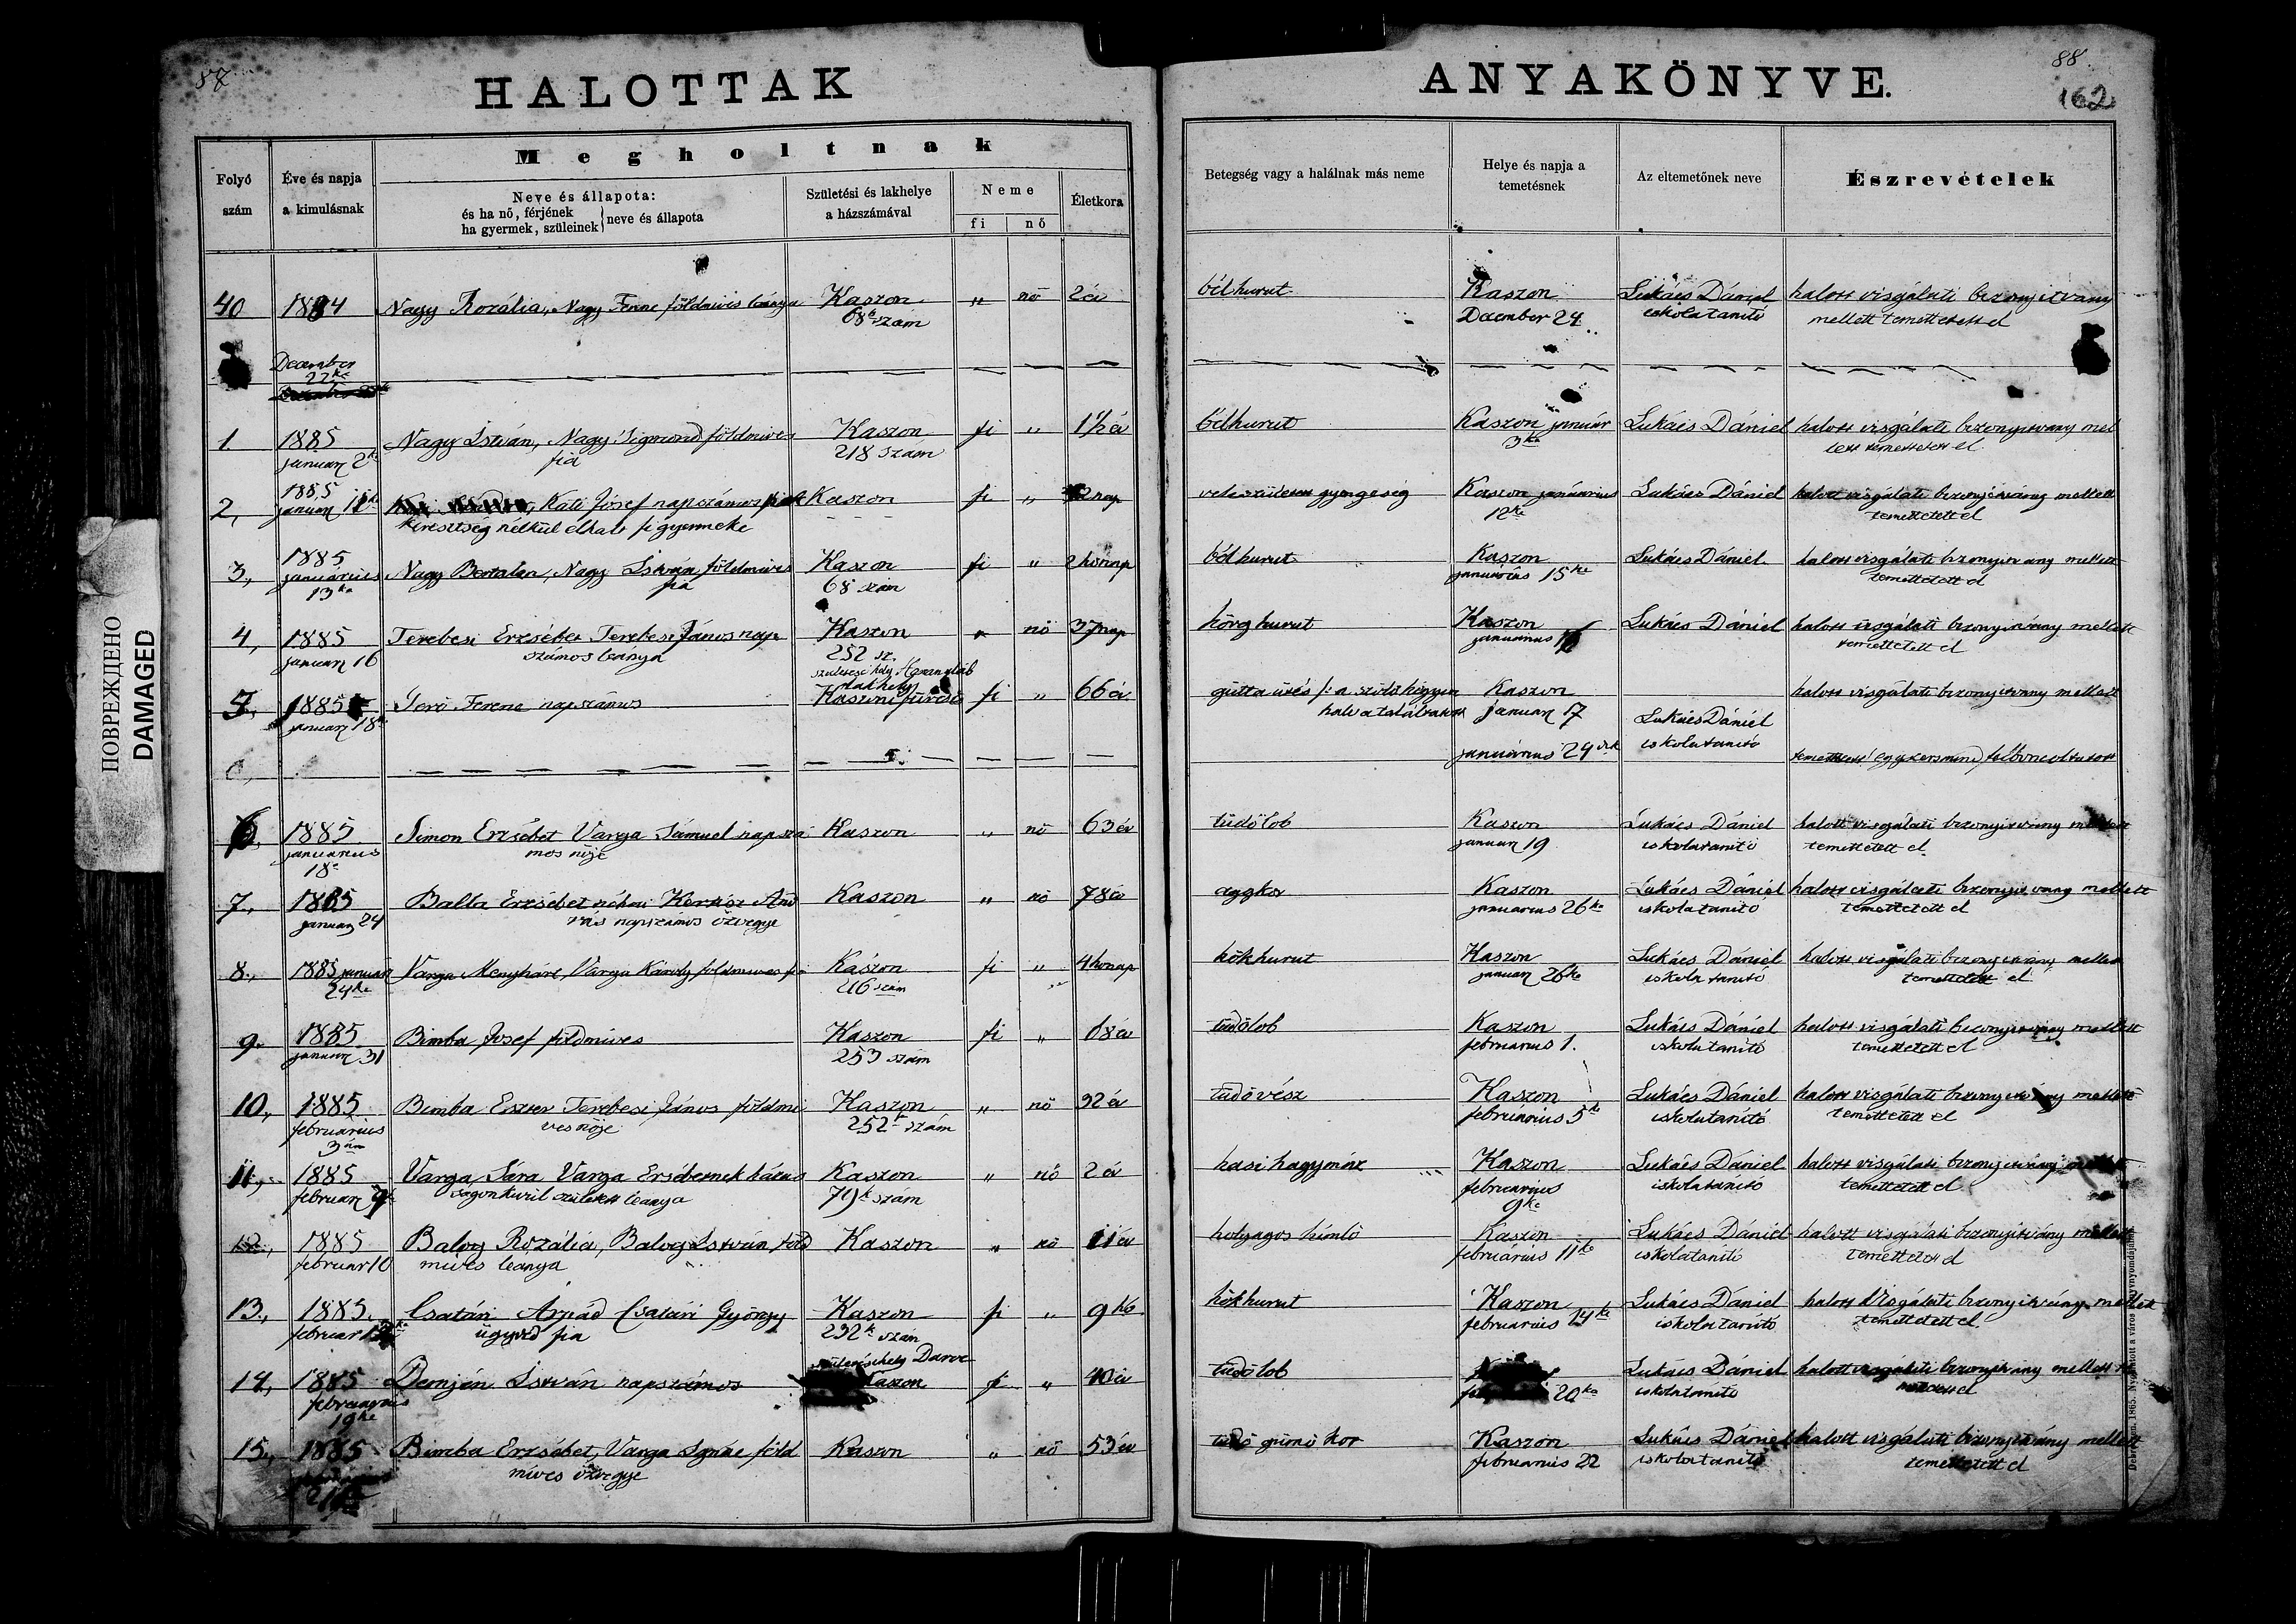 87
HALOTTAK
Megholtnak
Folyó szám
Éve és napja a kimulásnak
Neve és állapota:
és ha nő, férjének
ha gyermek, szüleinek
neve és állapota
Születési és lakhelye a házszámával
Neme
fi
nő
Életkora
40 1884 Nagy Rozália, Nagy Ferenc földmives leánya Kaszon „ nő 2 év
68k szám
December
22ke
1. 1885 Nagy István, Nagy Sigmond földmives Kaszon fi „ 1½ év
januar 2k fia 218 szám
2, 1885 Káti Jósef napszámos Kaszon fi „ nap
januar 11ke keresztség nélkül elhalt fi gyermeke
3, 1885 Nagy Bertalan, Nagy István földmives Kaszon fi „ 2 hónap
januárius fia 68 szám
13ke
4, 1885 Terebesi Erzsébet Terebesi János nap Kaszon „ nő 37 nap
januar 16 számos leánya 252 sz.
születési hely
lakhely
5, 1885 Jerő Ferenc napszámos Kaszoni fi „ 66 év
januar 18k
6, 1885 Simon Erzsébet Varga Sámuel napszá Kaszon „ nő 63 év
januarius mos nője
18k
7, 1885 Balla Erzsébet néhai And Kaszon „ nő 78 év
januar 24 rás napszámos özvegye
8, 1885 januar Varga Menyhárt, Varga Károly földmives fia Kászon fi „ 4 hónap
24ke 216 szám
9. 1885 Bimba Josef földmives Kaszon fi „ 68 év
januar 31 253 szám
10, 1885 Bimba Eszter Terebesi János földmi Kaszon „ nő 32 év
februarius ves nője 252k szám
3án
11, 1885 Varga Sára Varga Ersébetnek házas Kaszon „ nő 2 év
februar ságon kivül született leanya 79k szám
12, 1885 Balog Rozália, Balog István föld Kaszon „ nő 11 év
februar 10 mives leanya
13, 1885. Csatári Arpád Csatári György Kaszon fi „ 9 hó
februar ügyvéd fia 232k szám
születésihely Daroc
14, 1885 Demjén István napszámos Kaszon fi „ 40 év
februarius
19ke
15, 1885 Bimba Erzsébet, Varga Ignác föld Kaszon „ nő 53 év
mives özvegye
21
88.
162
ANYAKÖNYVE.
Betegség vagy a halálnak más neme
Helye és napja a temetésnek
Az eltemetőnek neve
Észrevételek
bélhurut Kaszon Lukács Dániel halott visgálati bizonyitvany
December 24 iskolatanitó mellett temettetett el
bélhurut Kaszon január Lukács Dániel halott visgálati bizonyitvany mel
3ke lett temettetett el
veleszületett gyengeség Kaszon januárius Lukács Dániel halott visgálati bizonyitvány mellett
12ke temettetett el
bélhurut Kaszon Lukács Dániel halott visgálati bizonyitvany mellett
januárius 15ke temettetett el
hörghurut Kaszon Lukács Dániel halott visgálati bizonyitvány mellett
januarius temettetett el
gutta ütés a szöllőhegyen Kaszon halott visgálati bizonyitvany mellett
halva találtatott januar 17 Lukács Dániel
januárius 24 iskolatanitó temettetett egyszersmind felboncoltatott
tüdőlob Kaszon Lukács Dániel halott visgálati bizonyitvany mellett
januar 19 iskolatanitó temettetett el
aggkor Kaszon Lukács Dániel halott visgálati bizonyitvany mellett
januarius 26ke iskolatanitó temettetett el
hökhurut Kaszon Lukács Dániel halott visgálati bizonyitvány mellett
januar 26ke iskolatanitó temettetett el
tüdőlob Kaszon Lukács Dániel halott visgálati bizonyitvány mellett
februarius 1. iskolatanitó temettetett el
tüdővész Kaszon Lukács Dániel halott visgálati bizonyitvány mellett
februárius 5k iskolatanitó temettetett el
hasi hagymáz Kaszon Lukács Dániel halott visgálati bizonyitvány mellett
februarius iskolatanitó temettetett el
9ke
holyagos himlő Kaszon Lukács Dániel halott visgálati bizonyitvány mellett
februárius 11ke iskolatanitó temettetett el
hökhurut Kaszon Lukács Dániel halott visgálati bizonyitvány mellett
februárius 14ke iskolatanitó temettetett el.
tüdőlob Lukács Dániel halott visgálati bizonyitvány mellett
20ke iskolatanitó el
tüdő gümő kór Kaszon Lukács Dániel halott visgálati bizonyitvány mellett
februarius 22 iskolatanitó temettetett el
ПОВРЕЖДЕНО
DAMAGED